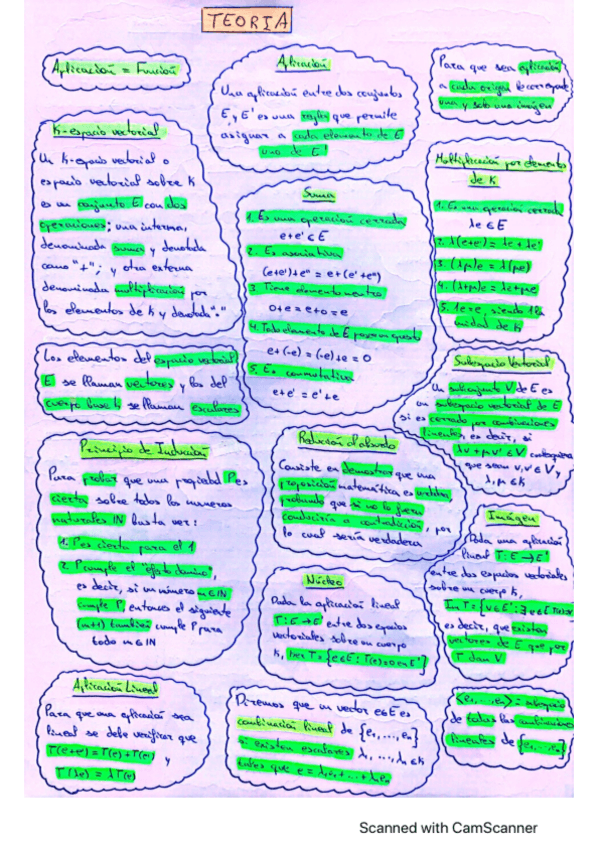 TEORIA
Aplicación = Función
Aplicación
Una aplicación entre dos conjuntos
E, y E' es una regla que permite
asignar a cada elemento de E
uno de E'
Para que sea aplicación
a cada origen le corresponde
una y solo una imagen
K-espacio vectorial
Un K-espacio vectorial o
espacio vectorial sobre K
es un conjunto E con dos
operaciones; una interna,
denominada suma y denotada
como "+"; y otra externa
denominada multiplicación por
los elementos de K y denotada "·"
Suma
1. Es una operación cerrada
e+e' ∈ E
2. Es asociativa
(e+e')+e" = e+(e'+e")
3. Tiene elemento neutro
0+e = e+0 = e
4. Todo elemento de E posee un opuesto
e+(-e) = (-e)+e = 0
5. Es conmutativa
e+e' = e'+e
Multiplicación por elementos
de K
1. Es una operación cerrada
λe ∈ E
2. λ(e+e') = λe+λe'
3. (λμ)e = λ(μe)
4. (λ+μ)e = λe+μe
5. 1e=e, siendo 1 la
unidad de K
Los elementos del espacio vectorial
E se llaman vectores y los del
cuerpo base K se llaman escalares
Subespacio Vectorial
Un subconjunto V de E es
un subespacio vectorial de E
si es cerrado por combinaciones
lineales, es decir, si
λv + μv' ∈ V cualesquiera
que sean v,v' ∈ V y
λ, μ ∈ K
Principio de Inducción
Para probar que una propiedad P es
cierta sobre todos los números
naturales IN basta ver:
1. P es cierta para el 1
2. P cumple el "efecto dominó",
es decir, si un número n ∈ IN
cumple P, entonces el siguiente
(n+1) también cumple P para
todo n ∈ IN
Reducción al absurdo
Consiste en demostrar que una
proposición matemática es verdadera,
probando que si no lo fuera
conduciría a contradicción, por
lo cual sería verdadera
Imágen
Dada una aplicación
lineal T: E → E'
entre dos espacios vectoriales
sobre un cuerpo K,
es decir, que existan
vectores de E que por
T dan V
Núcleo
Dada la aplicación lineal
T: E → E' entre dos espacios
vectoriales sobre un cuerpo
K, ker T = {e ∈ E : T(e) = 0 ∈ E'}
Aplicación Lineal
Para que una aplicación sea
lineal se debe verificar que
T(e+e') = T(e)+T(e') y
T(λe) = λT(e)
Diremos que un vector e∈E es
combinación lineal de {e₁,...,eₙ}
si existen escalares λ₁,...,λₙ ∈ K
tales que e = λ₁e₁ + ... + λₙeₙ
<e₁,...,eₙ>: subespacio
de todas las combinaciones
lineales de {e₁,...,eₙ}
Scanned with CamScanner